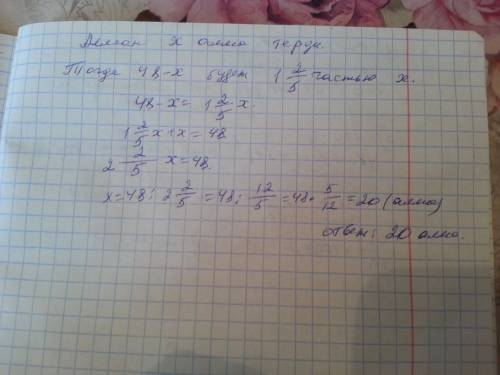 Асман х алма терди.
Тогда 48-х будет 1 2/5 частью х.
48-х= 1 2/5 х.
1 2/5 х+х=48
2 2/5 х=48.
х=48: 2 2/5 =48: 12/5 =48· 5/12 =20 (алма)
ответ: 20 алма.